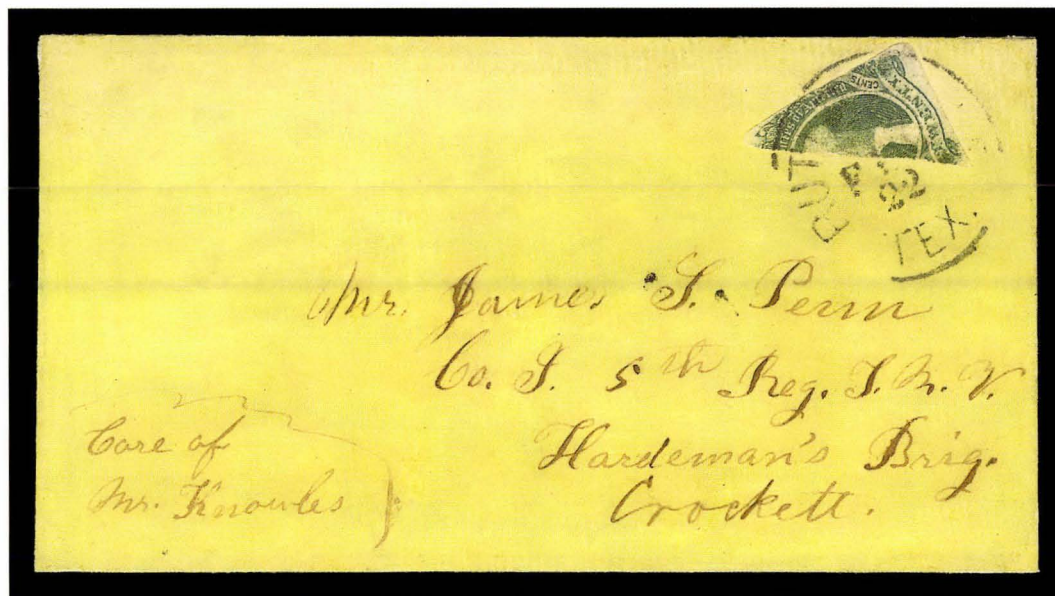 CENTS
TWENTY
RUT
22
TEX.
Mr. James S. Penn
Co. I. 5th Reg. T. M. V.
Hardeman's Brig.
Crockett.
Care of
Mr. Knowles